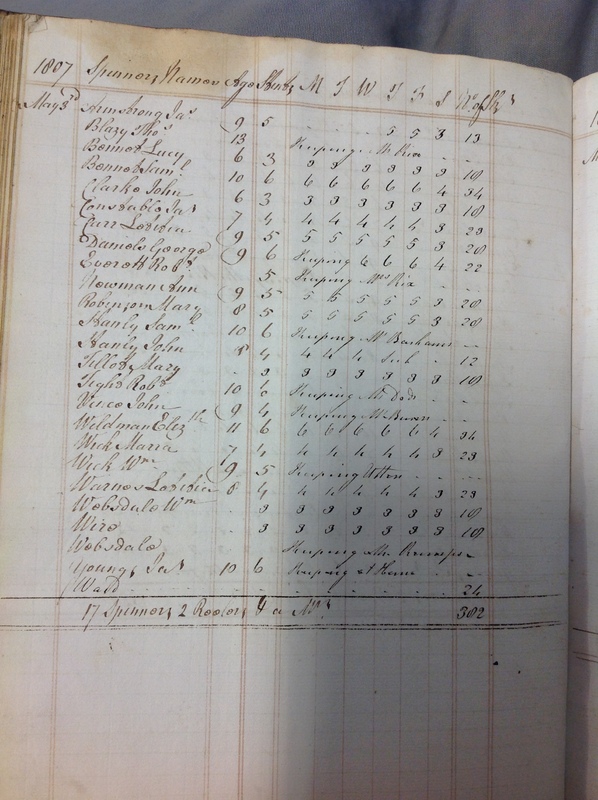 1807 Spinners Names Age Stint M T W T F S No of Sks
May 3d Armstrong Jas 9 5 . . . 5 5 3 13
Blazy Thos 13 Keeping Mr Rix - -
Bennet Lucy 6 3 3 3 3 3 3 3 18
Bennet Saml 10 6 6 6 6 6 6 4 34
Clarke John 6 3 3 3 3 3 3 3 18
Constable Jas 7 4 4 4 4 4 4 3 23
Carr Louisa 9 5 5 5 5 5 5 3 28
Daniels George 9 6 Keeping 6 6 6 4 22
Everett Robt 5 Keeping Mrs Rix - -
Newman Ann 9 5 5 5 5 5 5 3 28
Robinson Mary 8 5 5 5 5 5 5 3 28
Stanly Saml 10 6 Keeping Mr - -
Stanly John 8 4 4 4 4 Sick . 12
Tillott Mary . 3 3 3 3 3 3 3 18
Tight Robt 10 6 Keeping Mr - -
John 9 4 Keeping Mr - -
Wildman Elizth 11 6 6 6 6 6 6 4 34
Wick Maria 7 4 4 4 4 4 4 3 23
Wick Wm 9 5 Keeping - - -
Warnes Louisa 8 4 4 4 4 4 4 3 23
Websdale Wm . 3 3 3 3 3 3 3 18
Wire . 3 3 3 3 3 3 3 18
Websdale Keeping Mr
Young Jas 10 6 Keeping at Home - -
Ward 24
17 Spinners 2 Reelers 4 a 382